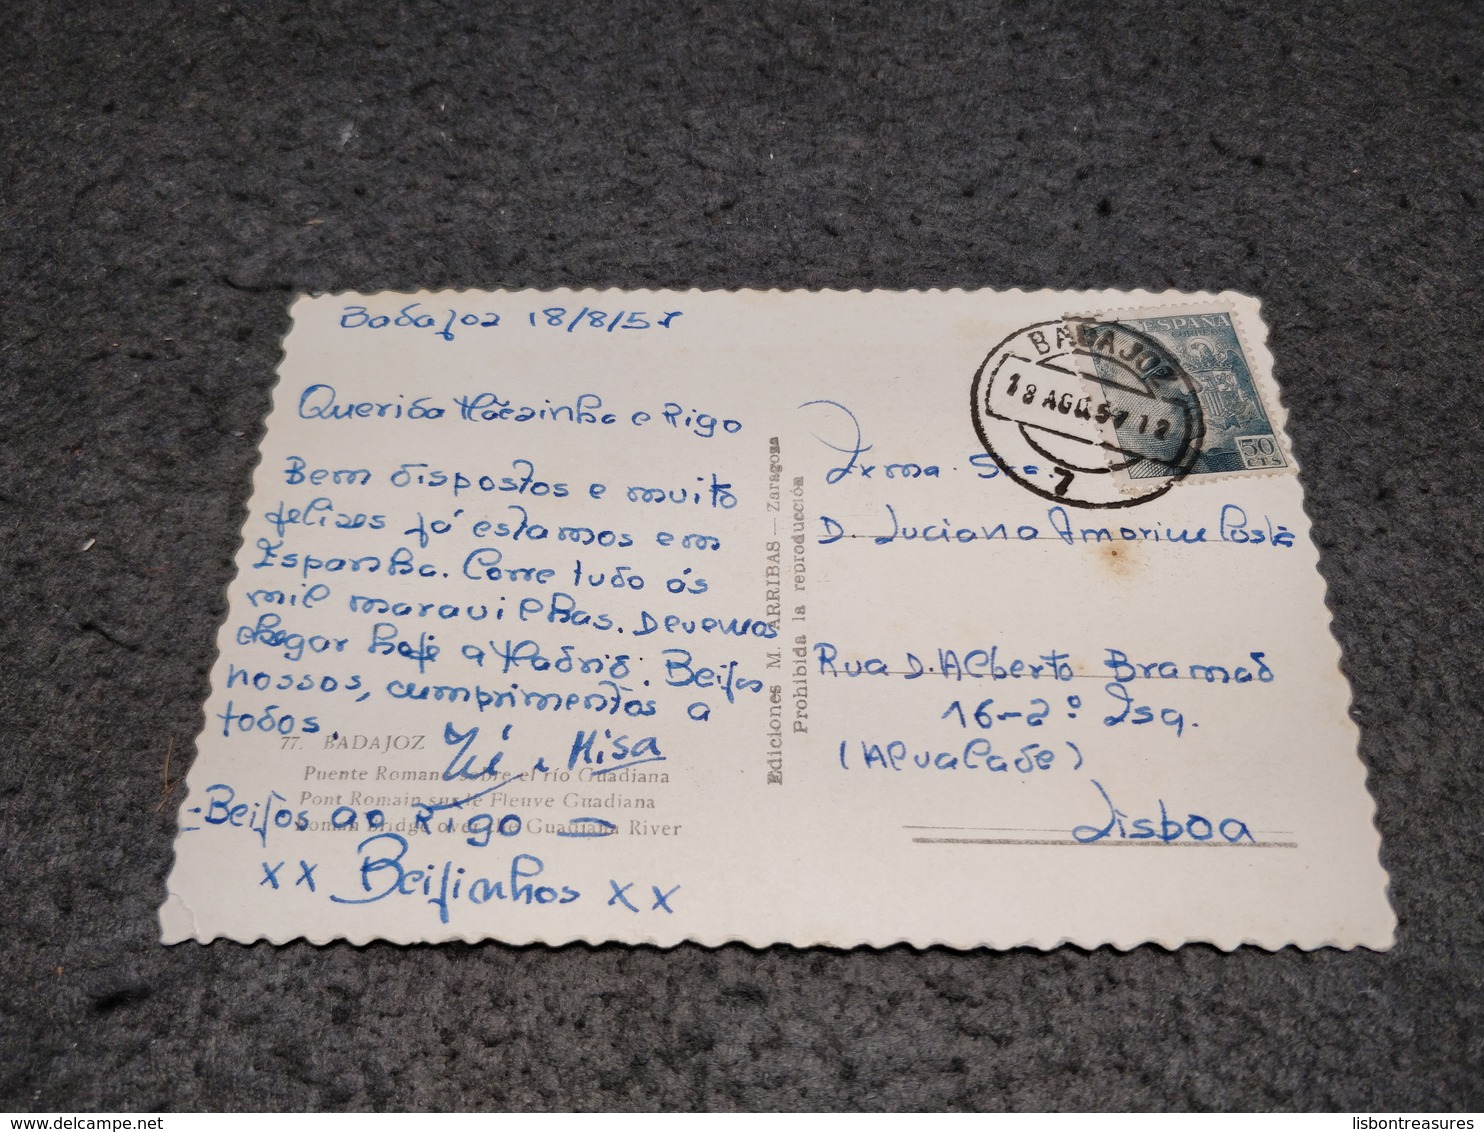 Badajoz 18/8/57
Querida Mãezinha e Rigo
Bem dispostos e muito
felizes já estamos em
Espanha. Corre tudo ás
mil maravilhas. Devemos
chegar hoje a Madrid. Beijos
nossos, cumprimentos a
todos.
Zé e Misa
77. BADAJOZ
Puente Romano sobre el río Guadiana
Pont Romain sur le Fleuve Guadiana
Roman Bridge over the Guadiana River
- Beijos ao Rigo -
x x Beijinhos x x
Ediciones M. ARRIBAS — Zaragoza
Prohibida la reproducción
ESPAÑA
CORREOS
50
CTS
BADAJOZ
18 AGO.57 12
7
Exma. Sra.
D. Luciana Amorim Costa
Rua D. Alberto Bramão
16-2º Esq.
(Alvalade)
Lisboa
lisbontreasures.com